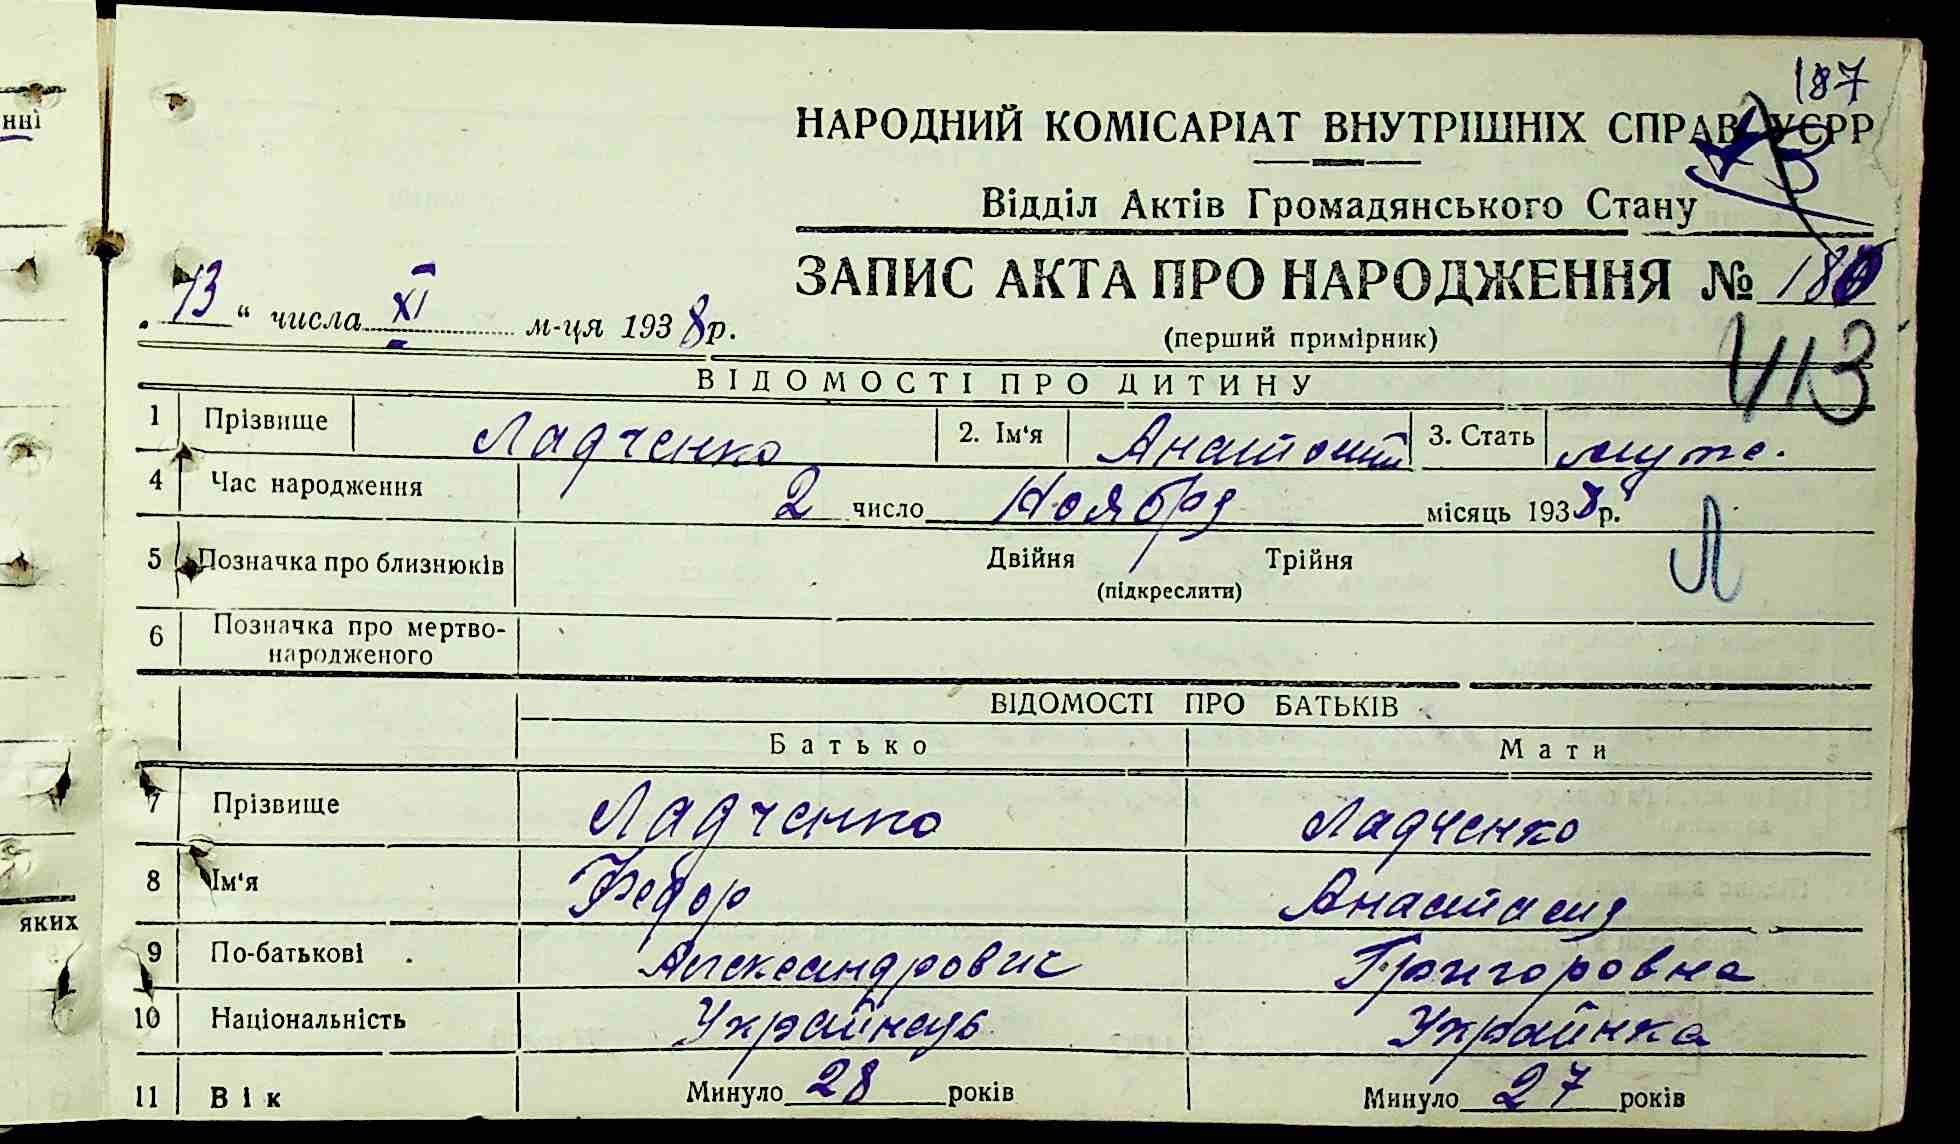 нні
187
НАРОДНИЙ КОМІСАРІАТ ВНУТРІШНІХ СПРАВ УСРР
Відділ Актів Громадянського Стану
ЗАПИС АКТА ПРО НАРОДЖЕННЯ № 180
„13“ числа XI м-ця 1938 р.
(перший примірник)
413
ВІДОМОСТІ ПРО ДИТИНУ
1 Прізвище Ладченко 2. Ім'я Анатолий 3. Стать муж.
4 Час народження 2 число Ноября місяць 1938 р.
Л
5 Позначка про близнюків Двійня Трійня
(підкреслити)
6 Позначка про мертво-
народженого
ВІДОМОСТІ ПРО БАТЬКІВ
Батько Мати
7 Прізвище Ладченко Ладченко
8 Ім'я Федор Анастасия
яких
9 По-батькові Александрович Григоровна
10 Національність Українець Українка
11 Вік Минуло 28 років Минуло 27 років